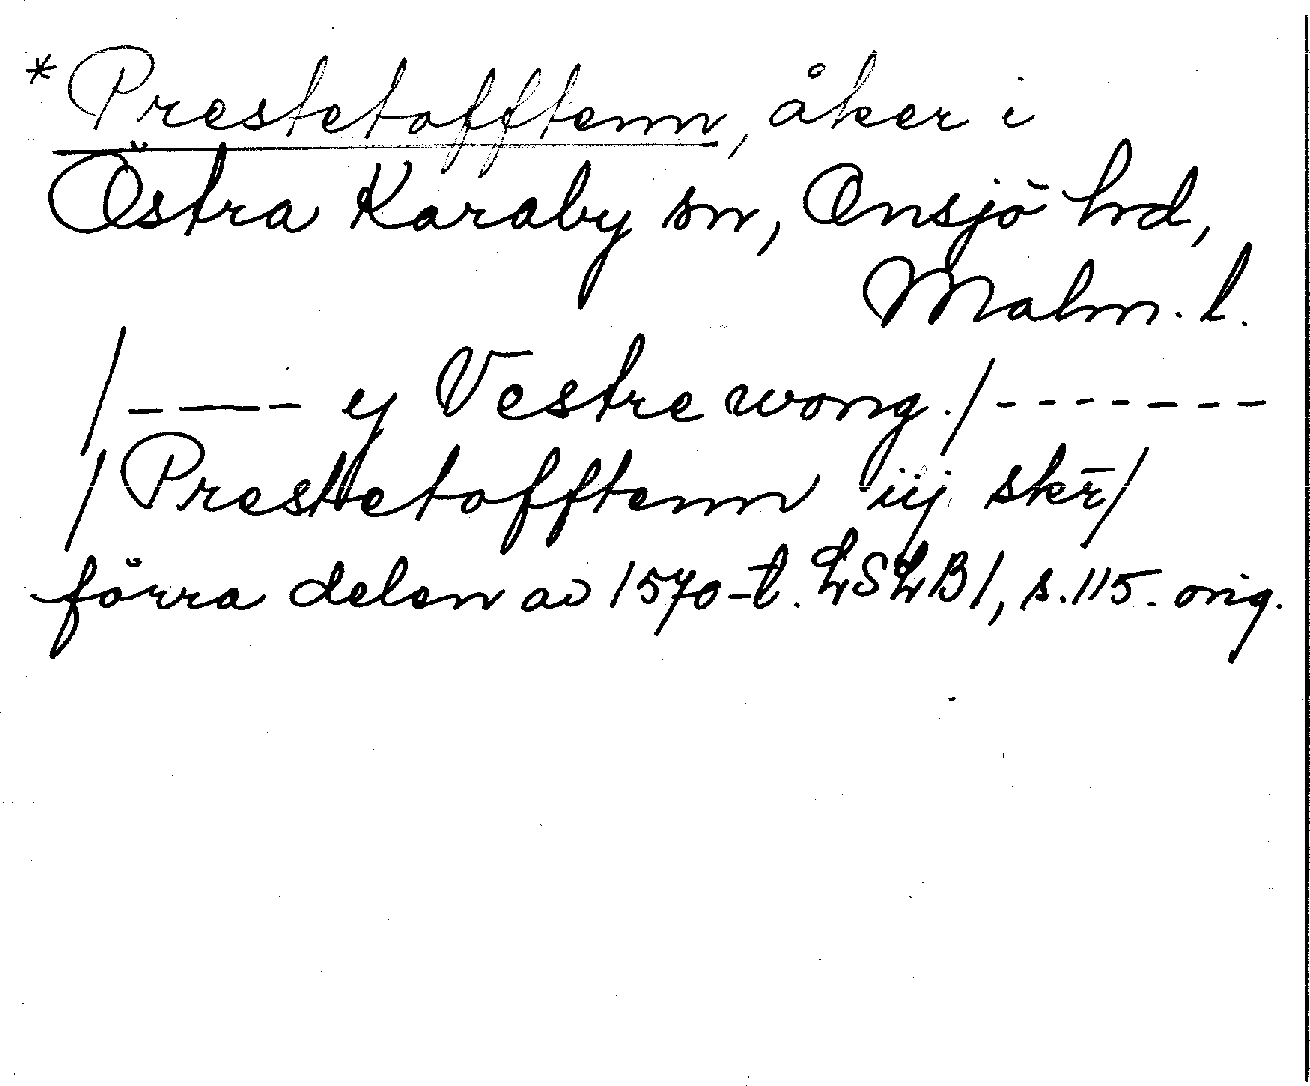 *Prestetofftenn, åker i
Östra Karaby sn, Onsjö hd,
Malm. l.
/----- ij Vestre wong./-------
/Prestetofftenn iij skr̄/
förra delen av 1570-t. LSLB1, s.115. orig.